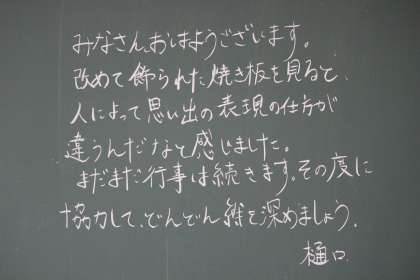 みなさん、おはようございます。
改めて飾られた焼き板を見ると、
人によって思い出の表現の仕方が
違うんだなと感じました。
まだまだ行事は続きます。その度に
協力して、どんどん絆を深めましょう。
樋口